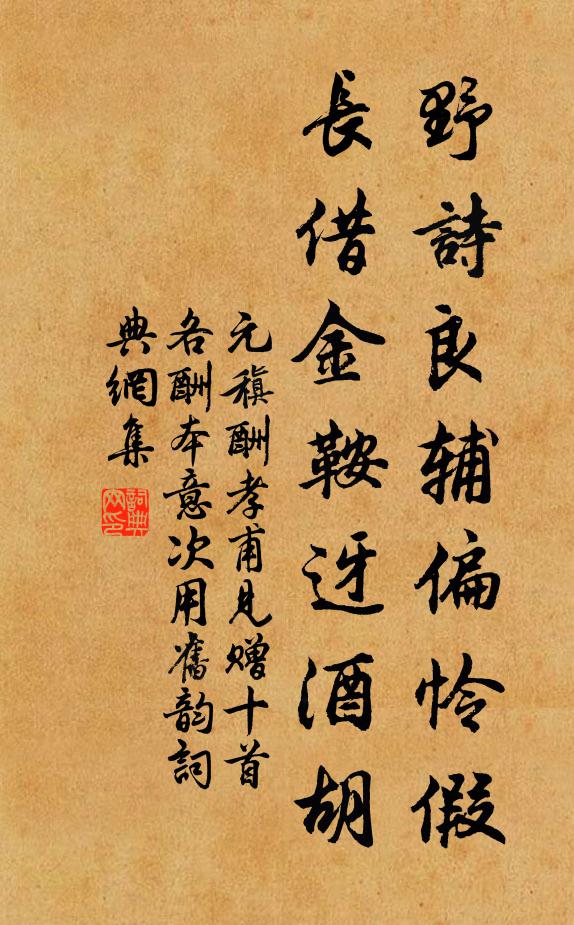 野詩良辅偏怜假
長借金鞍迓酒胡
元稹酬孝甫見赠十首
各酬本意次用舊韵詞
典網集
詞典网印